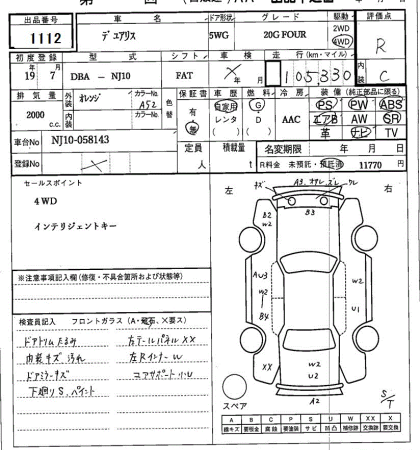 出品番号 車名 ドア形状 グレード 駆動 評価点
1112 デュアリス 5WG 20G FOUR 2WD 4WD R
初度登録 型式 シフト 車検 走行(km・マイル) 内装
19年 7月 DBA － NJ10 FAT × 年 月 105330 C
排気量 外装 オレンジ カラーNo. A52 色替 保証書 車歴 燃料 冷房 装備(純正部品に限る)
2000 c.c. 内装 カラーNo. 有 無 自家用 レンタ G D AAC PS PW ABS
エアB AW SR
革 ナビ TV
車台No NJ10-058143
登録No × 定員 人 積載量 t 名変期限 年 月 日
R料金 未預託・預託済 11770
セールスポイント
4WD
インテリジェントキー
左 右
キズ A3 ズレ ワレ
B2 W2 B3
AU3 W2 W2
B4 U1
XX W2 U2
A2
スペア
S/T
※注意事項記入欄(修復・不具合箇所および状態等)
検査員記入 フロントガラス(A・飛石、×要ス)
ドアトリムたるみ 右テールパネルXX
内装キズ汚れ 左RインナーW
ドアミラーキズ コアサポートU
下廻りS、ペイント
A B C P S U W X XX
線キズ 要板金 腐蝕 要塗装 サビ 凹凸 補修跡 交換跡 要交換